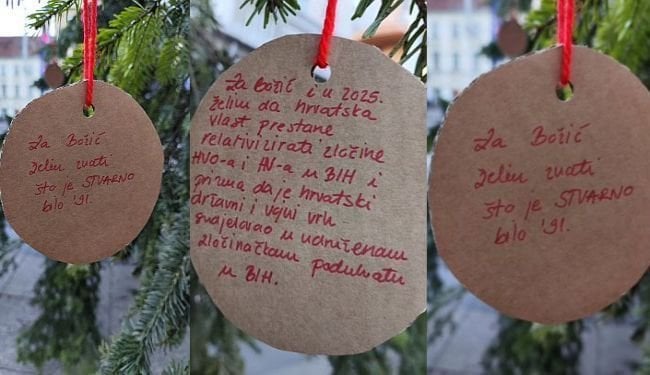 Za Božić
želim znati
što je STVARNO
bilo '91.
Za Božić i u 2025.
želim da hrvatska
vlast prestane
relativizirati zločine
HVO-a i HV-a u BIH i
prizna da je hrvatski
državni i vojni vrh
sudjelovao u udruženom
zločinačkom poduhvatu
u BIH.
Za Božić
želim znati
što je STVARNO
bilo '91.